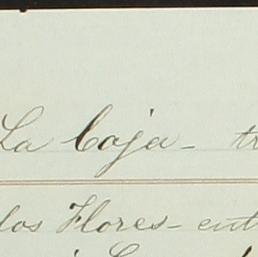 La Caja - tr
los Flores - ent